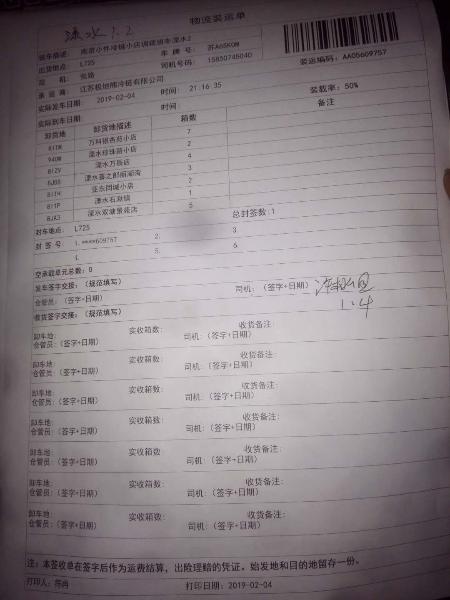 溧水1.2
物流装运单
装车描述: 南京小件冷链小店调拨班车溧水2
出货地点: L725
车 牌 号: 苏A65K0M
装运编码: AA05609757
司 机: 张路
司机号码: 15850745040
承 运 商: 江苏极地熊冷链有限公司
实际发车日期 2019-02-04 时间: 21:16:35
装载率: 50%
实际到车日期 时间:
卸货地 卸货地描述 箱数 备注
万科银杏苑小店 7
940W 溧水珍珠苑小店 2
溧水万辰店 4
3
亚东同城小店 2
1
溧水双塘景苑店 5
封车地点: L725
总封签数:1
封 签 号 1.****609757 2. 3.
4. 5. 6.
空承载单元总数: 0
发车签字交接: (规范填写)
仓管员: (签字+日期)
司机: (签字+日期)
1.4
收货签字交接: (规范填写)
卸车地: 实收箱数: 收货备注:
仓管员: (签字+日期) 司机: (签字+日期)
卸车地: 实收箱数: 收货备注:
仓管员: (签字+日期) 司机: (签字+日期)
卸车地: 实收箱数: 收货备注:
仓管员: (签字+日期) 司机: (签字+日期)
卸车地: 实收箱数: 收货备注:
仓管员: (签字+日期) 司机: (签字+日期)
卸车地: 实收箱数: 收货备注:
仓管员: (签字+日期) 司机: (签字+日期)
卸车地: 实收箱数: 收货备注:
仓管员: (签字+日期) 司机: (签字+日期)
卸车地: 实收箱数: 收货备注:
仓管员: (签字+日期) 司机: (签字+日期)
注: 本签收单在签字后作为运费结算, 出险理赔的凭证。始发地和目的地留存一份。
打印人: 芮冉
打印日期: 2019-02-04